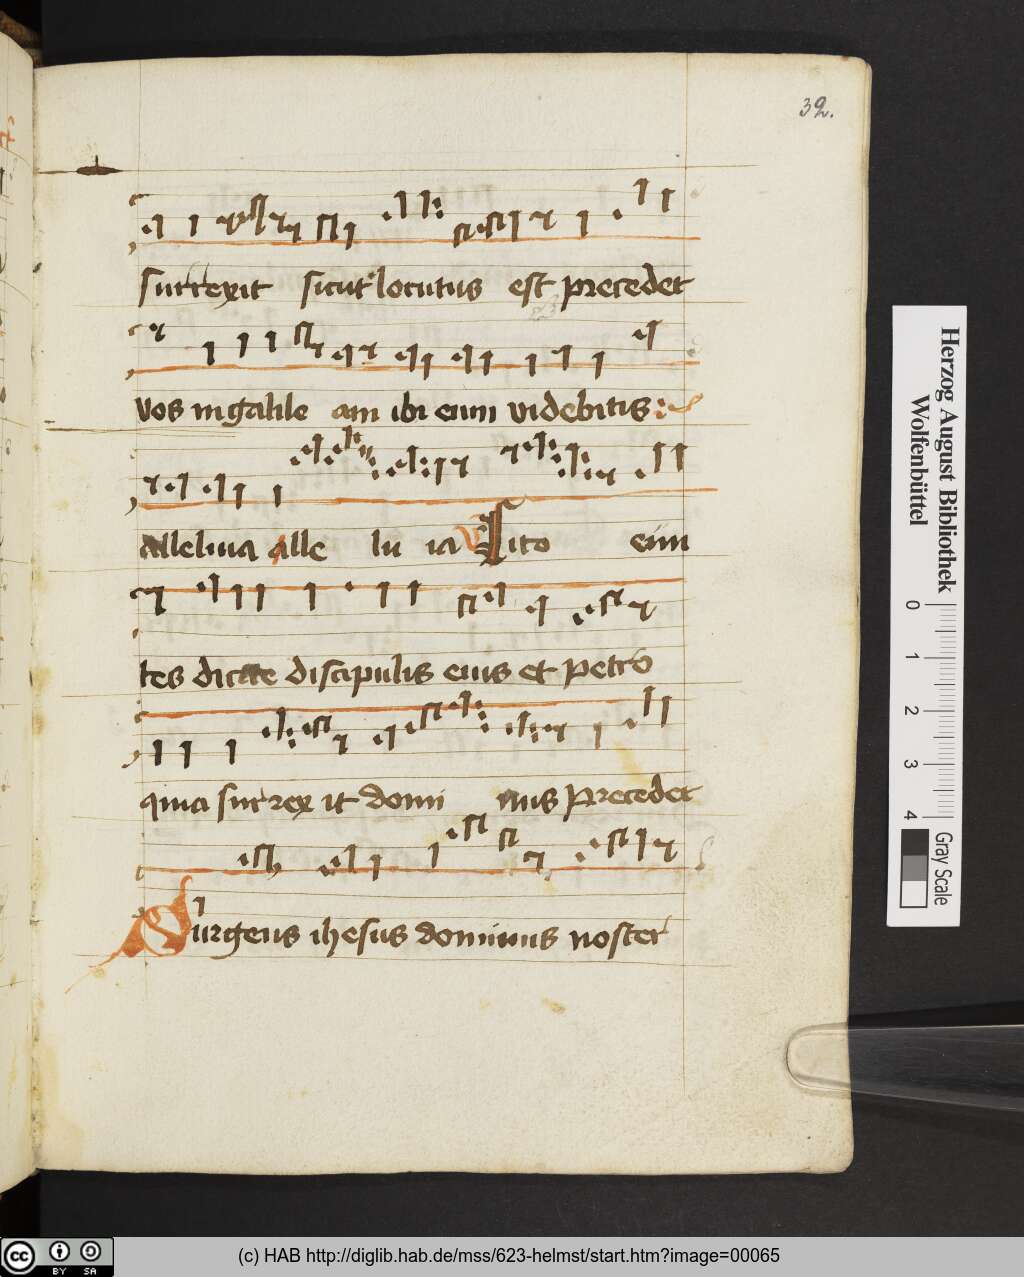 32.
surrexit sicut locutus est precedet
vos in galile am ibi eum videbitis
allelu ia alle lu ia V Cito eun
tes dicite discipulis eius et petro
quia surrex it domi nus Precedet
Surgens ihesus dominus noster
Herzog August Bibliothek
Wolfenbüttel
0 1 2 3 4
Gray Scale
cc BY SA
(c) HAB http://diglib.hab.de/mss/623-helmst/start.htm?image=00065